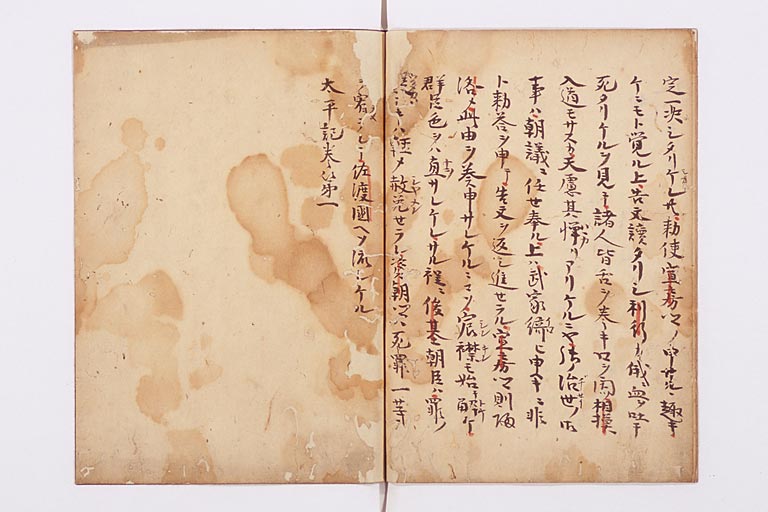 定一決シタリケレ共勅使宣房卿ノ申サレシ趣キ
ケニモト覚ル上告文読タリシ利行俄ニ血ヲ吐テ
死タリケルヲ見テ諸人皆舌ヲ巻キ口ヲ閉相摸
入道モサスカ天慮其憚リアリケルニヤ御治世ノ御
事ハ朝議ニ任セ奉ル上ハ武家綺ヒ申ヘキニ非
ト勅答ヲ申テ告文ヲ返シ進セラル宣房卿則帰
洛メ此由ヲ奏申サレケルニコソ宸襟モ始テ解ケ
群臣色ヲハ直サレケレサル程ニ俊基朝臣ハ罪ノ
疑シキハ軽メ赦免セラレ資朝卿ハ死罪一等ヲ
宥ラレテ佐渡國ヘソ流レケル
太平記巻第一